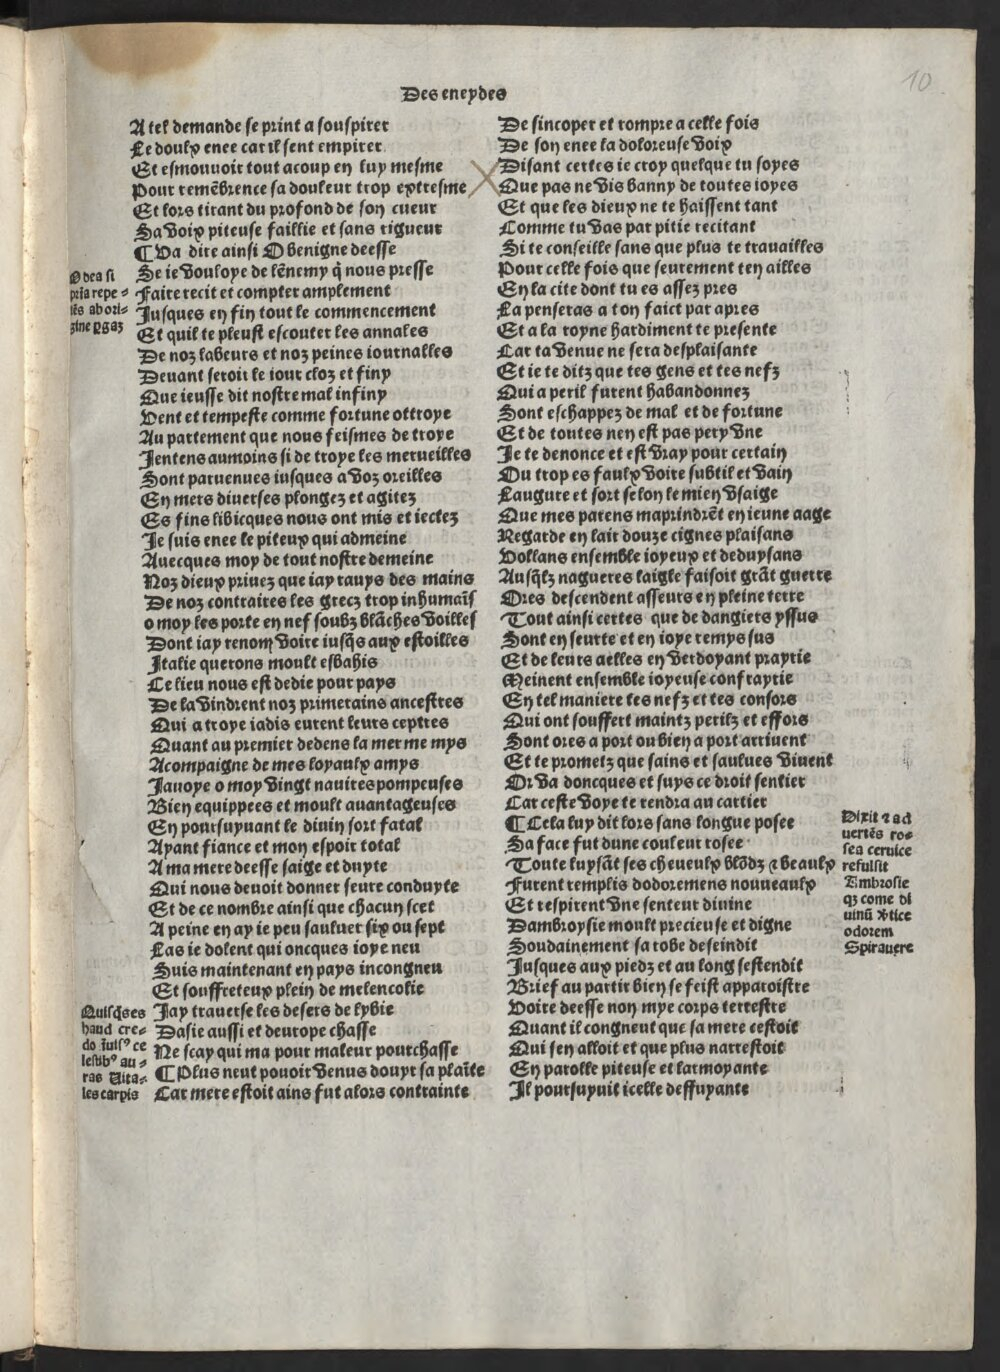 10
Des eneydes
A tel demande se print a souspirer
Le doulx enee car il sent empirer
Et esmouuoir tout acoup en luy mesme
Pour remēbrence sa douleur trop extresme
Et lors tirant du profond de son cueur
Sa voix piteuse faillie et sans rigueur
¶ Va dire ainsi O benigne deesse
Se ie vouloye de lēnemy q̄ nous presse
Faire recit et compter amplement
Jusques en fin tout le commencement
Et quil te pleust escouter les annales
De noz labeurs et noz peines iournalles
Deuant seroit le iour cloz et finy
Que ieusse dit nostre mal infiny
Vent et tempeste comme fortune ottroye
Au partement que nous feismes de troye
Jentens aumoins si de troye les merueilles
Sont paruenues iusques a voz oreilles
En mers diuerses plongez et agitez
Es fins libicques nous ont mis et iectez
Je suis enee le piteux qui admeine
Auecques moy de tout nostre demeine
Noz dieux priuez que iay rauys des mains
De noz contraires les grecz trop inhumaīs
o moy les porte en nef soubz blāches voilles
Dont iay renom voire iusq̄s aux estoilles
Italie querons moult esbahis
Ce lieu nous est dedie pour pays
De la vindrent noz primerains ancestres
Qui a troye iadis eurent leurs ceptres
Quant au premier dedens la mer me mys
Acompaigne de mes loyaulx amys
Jauoye o moy vingt nauires pompeuses
Bien equippees et moult auantageuses
En poursuyuant le diuin sort fatal
Ayant fiance et mon espoir total
A ma mere deesse saige et duyte
Qui nous deuoit donner seure conduyte
Et de ce nombre ainsi que chacun scet
A peine en ay ie peu sauluer six ou sept
Las ie dolent qui oncques ioye neu
Suis maintenant en pays incongneu
Et souffreteux plein de melencolie
Jay trauerse les desers de lybie
Dasie aussi et deurope chasse
Ne scay qui ma pour maleur pourchasse
¶ Plus neut pouoir venus douyr sa plaīte
Car mere estoit ains fut alors contrainte
O dea si
pria repe-
tēs abori-
gine pgaz
Quisq̄s es
haud cre-
do īuisꝰ ce
lestibꝰ au-
ras vita-
les carpis
De sincoper et rompre a celle fois
De son enee la doloreuse voix
Disant certes ie croy quelque tu soyes
Que pas ne vis banny de toutes ioyes
Et que les dieux ne te haissent tant
Comme tu vas par pitie recitant
Si te conseille sans que plus te trauailles
Pour celle fois que seurement ten ailles
En la cite dont tu es assez pres
La penseras a ton faict par apres
Et a la royne hardiment te presente
Car ta venue ne sera desplaisante
Et ie te ditz que tes gens et tes nefz
Qui a peril furent habandonnez
Sont eschappez de mal et de fortune
Et de toutes nen est pas pery vne
Je te denonce et est vray pour certain
Ou trop es faulx voire subtil et vain
Laugure et sort selon le mien vsaige
Que mes parens maprindrēt en ieune aage
Regarde en lair douze cignes plaisans
Vollans ensemble ioyeux et deduysans
Ausq̄lz nagueres laigle faisoit grāt guerre
Ores descendent asseurs en pleine terre
Tout ainsi certes que de dangiers yssus
Sont en seurte et en ioye remys sus
Et de leurs aelles en verdoyant prayrie
Meinent ensemble ioyeuse confrayrie
En tel maniere tes nefz et tes consors
Qui ont souffert maintz perilz et effors
Sont ores a port ou bien a port arriuent
Et te prometz que sains et saulues viuent
Or va doncques et suys ce droit sentier
Car ceste voye te rendra au cartier
¶ Cela luy dit lors sans longue posee
Sa face fut dune couleur rosee
Toute luysāt ses cheueulx blōdz ⁊ beaulx
Furent remplis dodoremens nouueaulx
Et respirent vne senteur diuine
Dambroysie moult precieuse et digne
Soudainement sa robe descindit
Jusques aux piedz et au long sestendit
Brief au partir bien se feist apparoistre
Voire deesse non mye corps terrestre
Quant il congneut que sa mere cestoit
Qui sen alloit et que plus narrestoit
En parolle piteuse et larmoyante
Il poursuyuit icelle deffuyante
Dixit ⁊ ad
uertēs ro-
sea ceruice
refulsit
Ambrosie
qz come di
uinū v̄tice
odorem
Spirauere